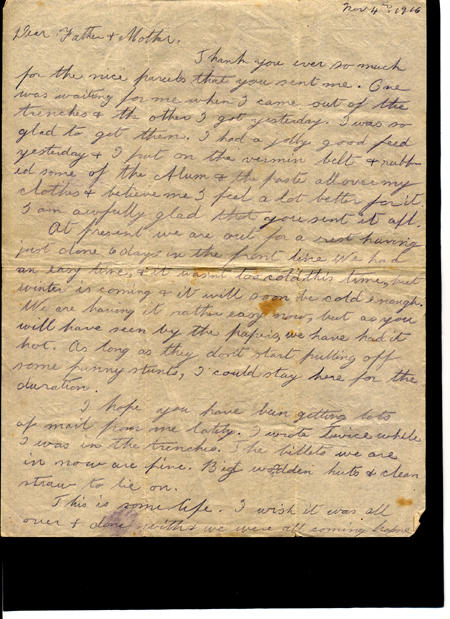 Nov 4th, 1916
Dear Father & Mother,
Thank you ever so much
for the nice parcels that you sent me. One
was waiting for me when I came out of the
trenches & the other I got yesterday. I was so
glad to get them. I had a jolly good feed
yesterday & I put on the vermin belt & rubb-
ed some of the Alum & the paste all over my
clothes & believe me I feel a lot better for it.
I am awfully glad that you sent it all.
At present we are out for a rest having
just done 6 days in the front line. We had
an easy time, & it wasnt too cold this time, but
winter is coming & it will soon be cold enough.
We are having it rather easy now, but as you
will have seen by the papers, we have had it
hot. As long as they dont start pulling off
some funny stunts, I could stay here for the
duration.
I hope you have been getting lots
of mail from me lately. I wrote twice while
I was in the trenches. The billets we are
in now are fine. Big wooden huts & clean
straw to lie on.
This is some life. I wish it was all
over & done with & we were all coming home